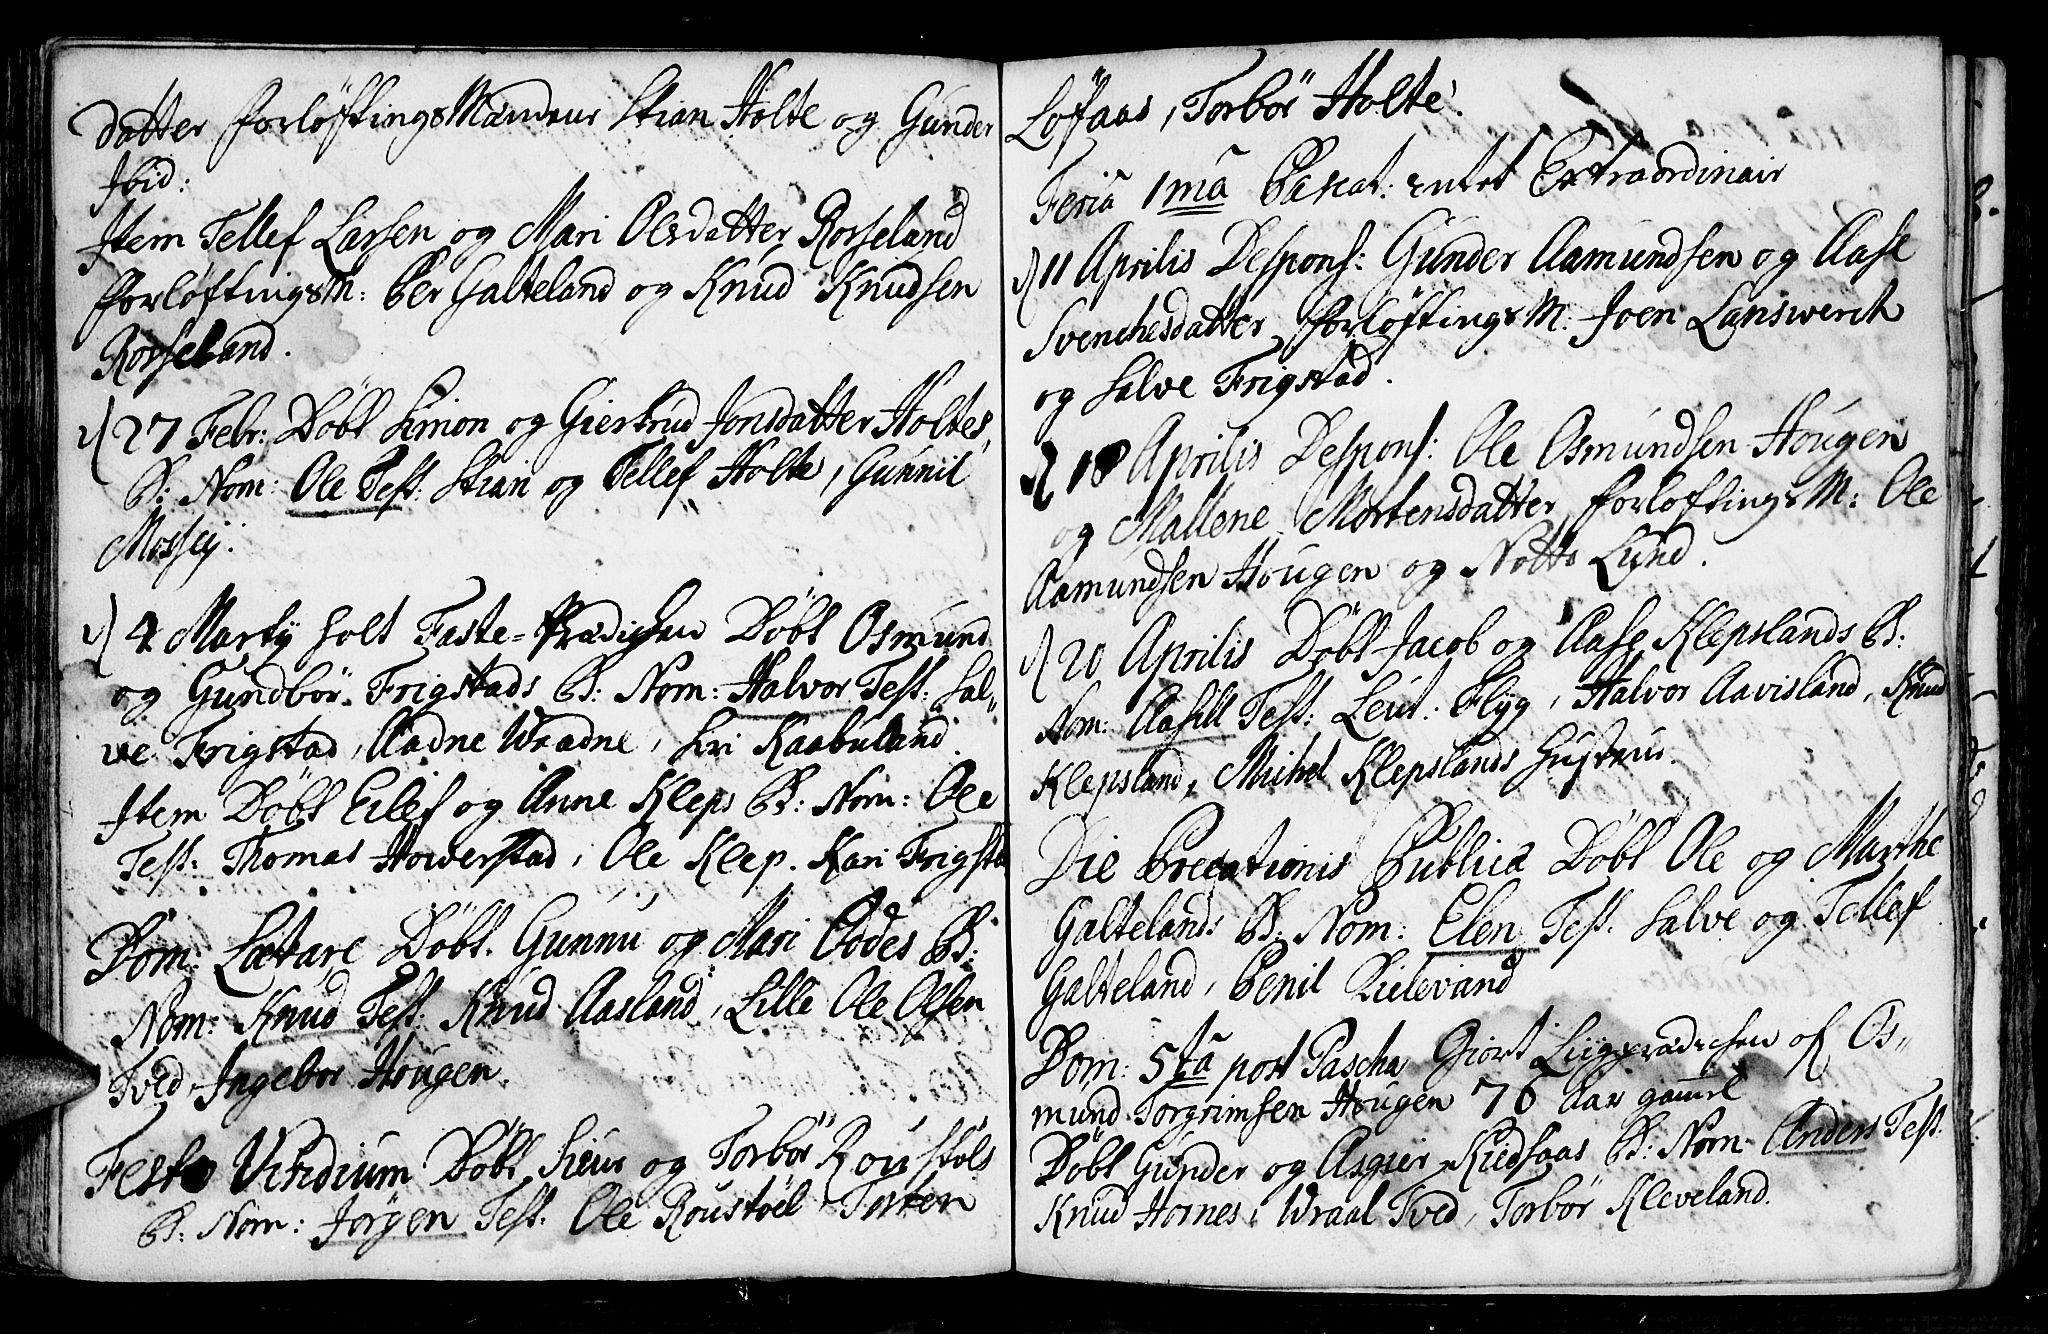 datter forløftings Mændene Stian Holte og Gunder
Ibid:
Item Tellef Larsen og Mari Olsdatter Rosseland
forløftingsM: Per Galteland og Knud Knudsen
Rosseland.
d 27 Febr: Döbt Simon og Giertrud Jonsdatter Holtes
B: Nom: Ole Test: Stian og Tellef Holte, Gunnil
Mossej.
d 4 Martij holt Faste-Prædichen Döbt Osmund
og Gundbör Frigstads B: Nom: Halvor Test: Sal-
ve Frigstad, Aadne Wraadne, Siri Kaabuland.
Item Döbt Eilef og Anne Kleps B: Nom: Ole
Test: Thomas Howerstad, Ole Klep. Kari Frigsta
Dom: Lætare Döbt. Gunnu og Mari Oddes B:
Nom: Knud Test: Knud Aasland, Lille Ole Olsen
Tved, Ingebor Hougen.
Festo Viridium Döbt Siur og Torbör Roustöls
B: Nom: Jörgen Test. Ole Roustöel, Torten
Løfaas, Torbör Holte.
Feria 1mâ Pascat: Extraordinair
d 11 Aprilis Despons: Gunder Aamundsen og Aase
Svenchesdatter forløftingsM: Joen Lanswerch
og Salve Frigstad.
d 18 Aprilis Despons: Ole Osmundsen Hougen
og Mallene Mortensdatter forløftingsM: Ole
Aamundsen Hougen og Notto Lund.
d 20 Aprilis Döbt Jacob og Aase Klepslands B:
Nom: Aasill Test: Leut: Flyg, Halvor Aavisland, Knud
Klepsland, Michel Klepslands Hustrue.
Die Precationis Publica Döbt Ole og Marthe
Galtelands B: Nom: Elen Test. Salve og Tellef
Galteland, Penil Kielevand
Dom: 5tâ post Pascha Giort Liigprædichen of Os-
mund Torgrimsen Hougen 76 Aar gaml
Döbt Gunder og Asgier Kiedsaas B: Nom: Anders Test:
Knud Hornes, Wraal Tved, Torbör Kleveland.